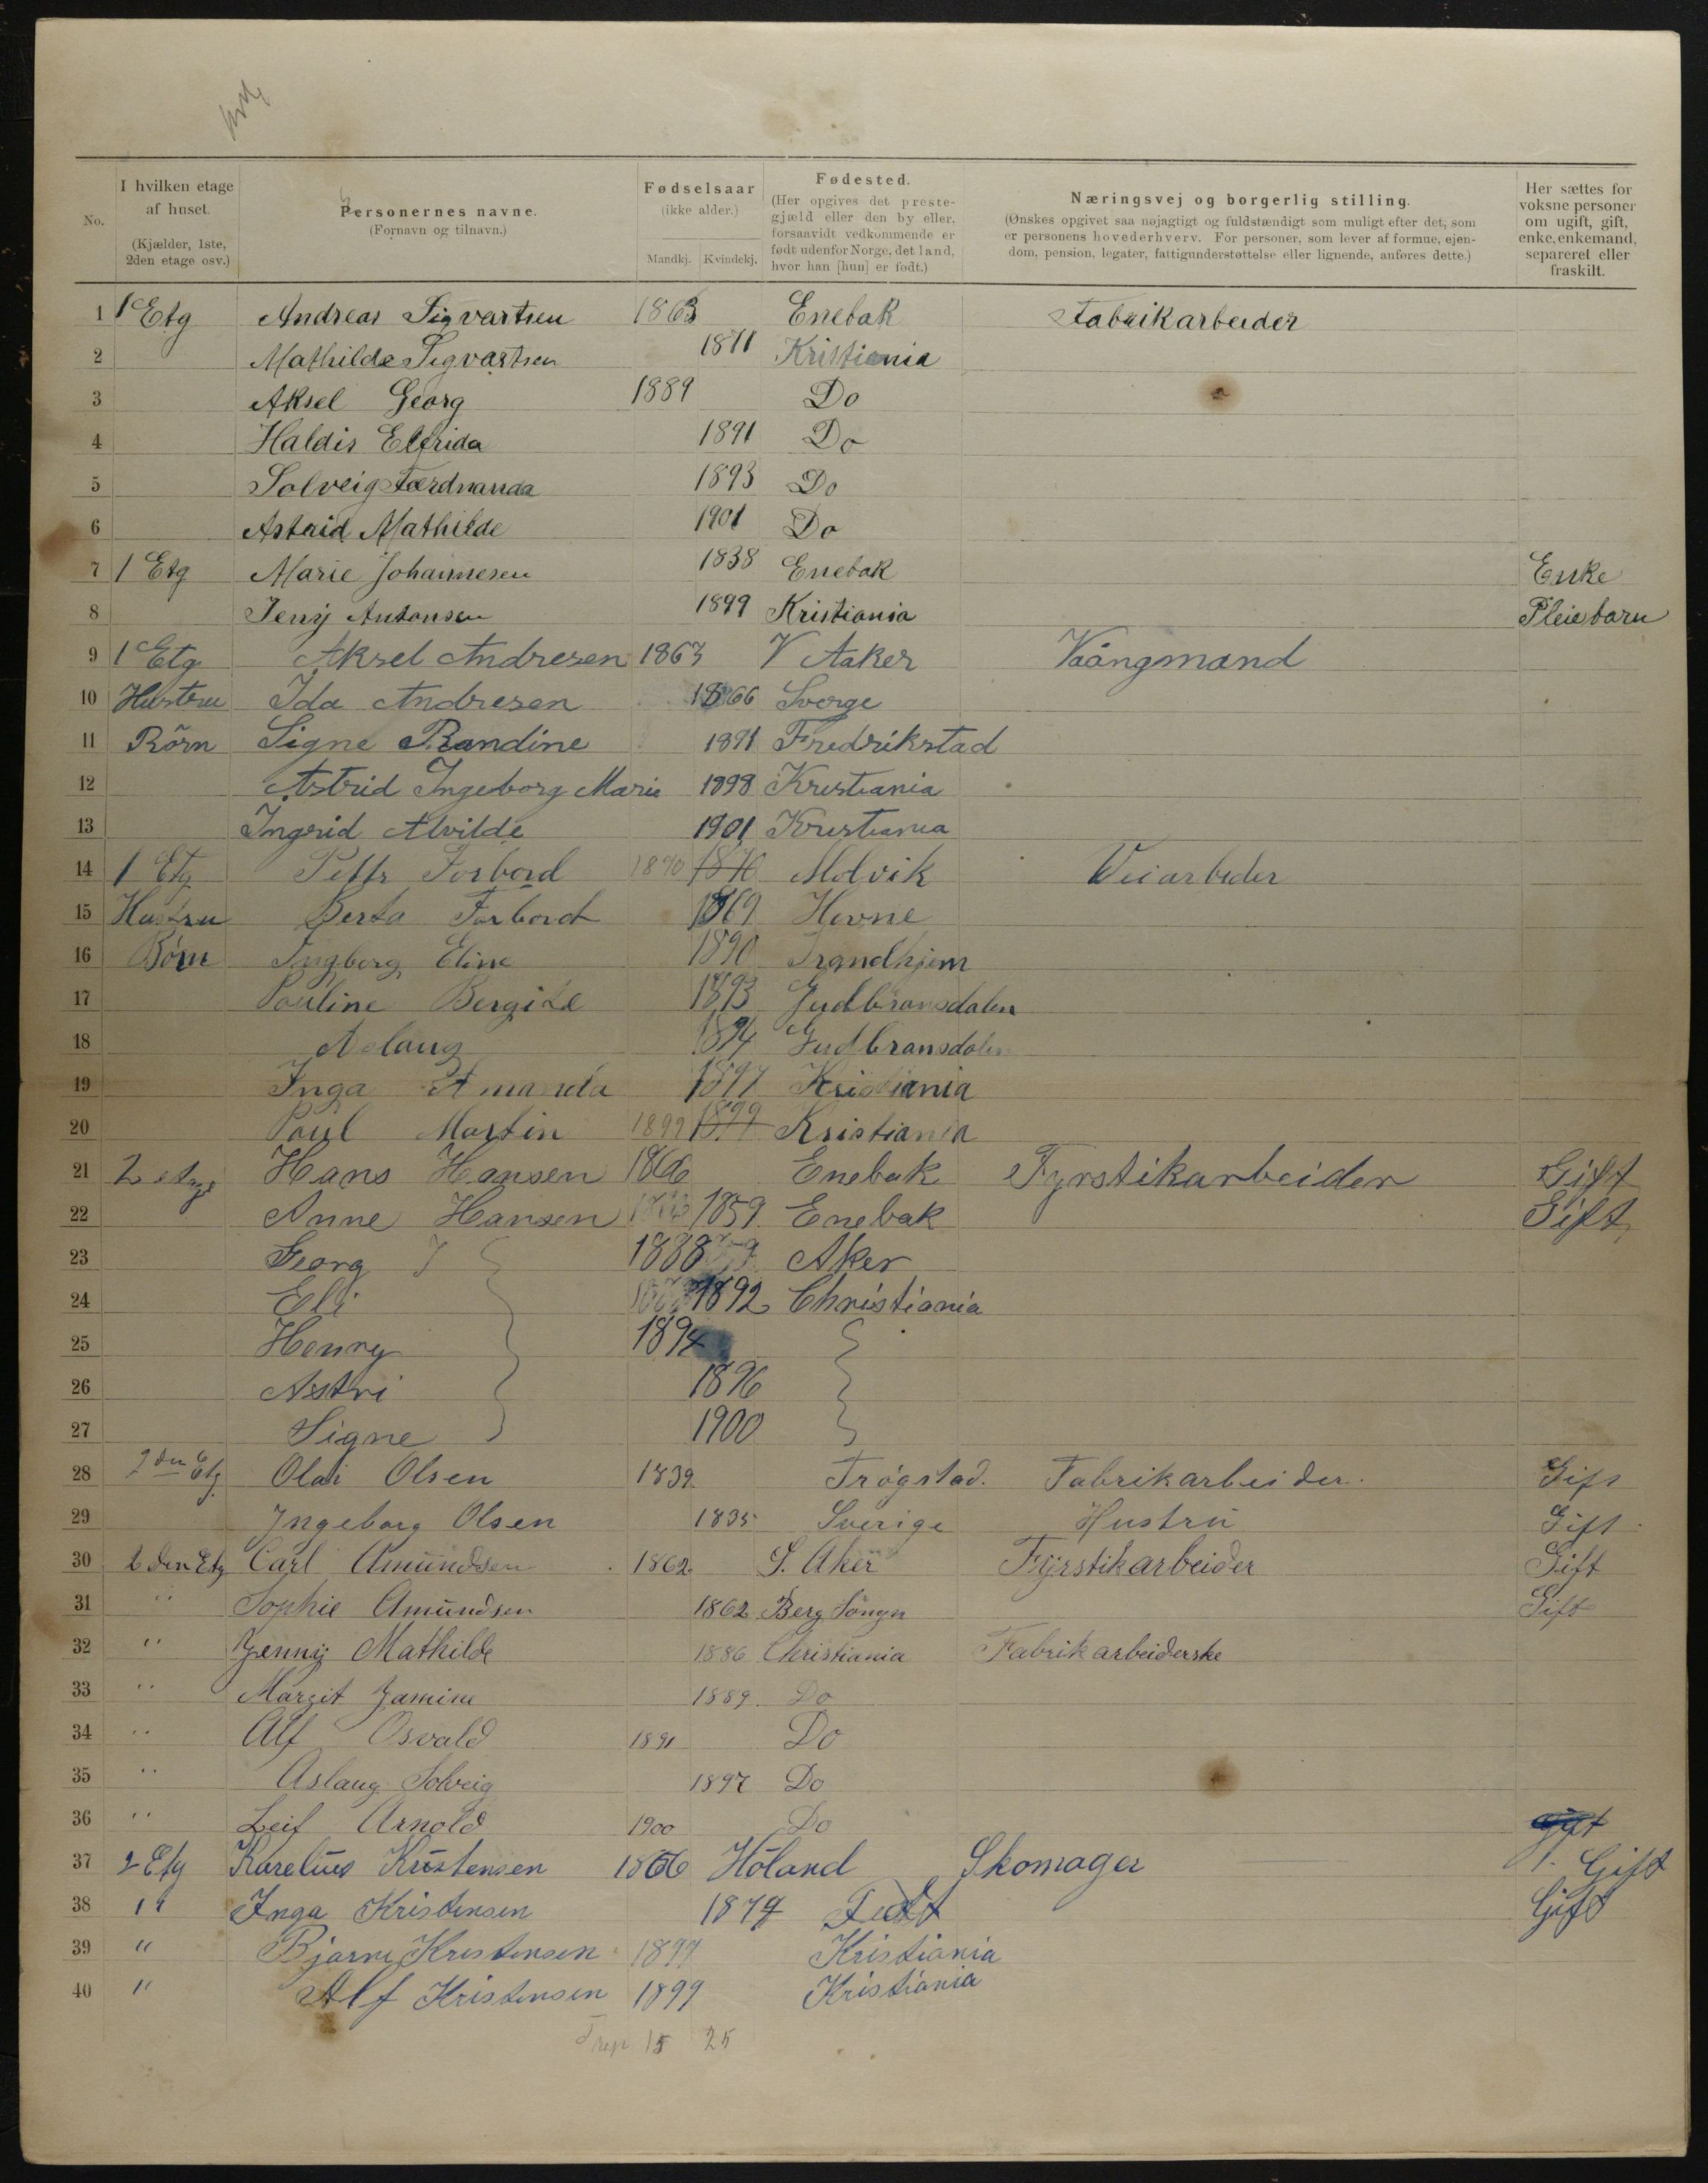 No. I hvilken etage af huset. (Kjælder, 1ste, 2den etage osv.) Personernes navne. (Fornavn og tilnavn.) Fødselsaar (ikke alder.) Mandkj. Kvindekj. Fødested. (Her opgives det prestegjæld eller den by eller, forsaavidt vedkommende er født udenfor Norge, det land, hvor han [hun] er født.) Næringsvej og borgerlig stilling. (Ønskes opgivet saa nøjagtigt og fuldstændigt som muligt efter det, som er personens hovederhverv. For personer, som lever af formue, ejendom, pension, legater, fattigunderstøttelse eller lignende, anføres dette.) Her sættes for voksne personer om ugift, gift, enke, enkemand, separeret eller fraskilt.
1 1 Etg Andreas Sigvartsen 1863 Enebak Fabrikarbeider
2 Mathilde Sigvartsen 1871 Kristiania
3 Aksel Georg 1889 Do
4 Haldis Elfrida 1891 Do
5 Solveig Færdnanda 1893 Do
6 Astrid Mathilde 1901 Do
7 1 Etg Marie Johannesen 1838 Enebak Enke
8 Jenny Antonsen 1899 Kristiania Pleiebarn
9 1 Etg Aksel Andresen 1863 V Aaker Vaångmand
10 Hustru Ida Andresen 1866 Sverge
11 Börn Signe Randine 1891 Fredrikstad
12 Astrid Ingeborg Marie 1898 Kristiania
13 Ingrid Alvilde 1901 Kristiania
14 1 Etg Petter Forbord 1870 1870 Molvik Veiarbeder
15 Hustru Berta Forbord 1869 Hevne
16 Börn Ingborg Eline 1890 Trondhjem
17 Pauline Bergite 1893 Gudbransdalen
18 Aslaug 1894 Gudbransdalen
19 Inga Amanda 1897 Kristiania
20 Paul Martin 1899 1899 Kristiania
21 2 etge Hans Hansen 1866 Enebak Fyrstikarbeider Gift
22 Anne Hansen 1859 Enebak Gift
23 Georg 1888 Aker
24 Eli 1892 Christiania
25 Henry 1894
26 Astri 1896
27 Signe 1900
28 2den Etg Olai Olsen 1839 Trøgstad. Fabrikarbeider. Gift
29 Ingeborg Olsen 1835 Sverige Hustru Gift
30 2den Etg Carl Amundsen 1862 S. Aker Fyrstikarbeider Gift
31 " Sophie Amundsen 1862 Berg Songn Gift
32 " Jenny Mathilde 1886 Christiania Fabrikarbeiderske
33 " Margit Jamine 1889. Do
34 " Alf Osvald 1891 Do
35 " Aslaug Solveig 1897 Do
36 " Leif Arnold 1900 Do Gift
37 2 Etg Karelius Kristensen 1866 Höland Skomager Gift
38 " Inga Kristensen 1874 Fedt Gift
39 " Bjarne Kristensen 1897 Kristiania
40 " Alf Kristensen 1899 Kristiania
15 25